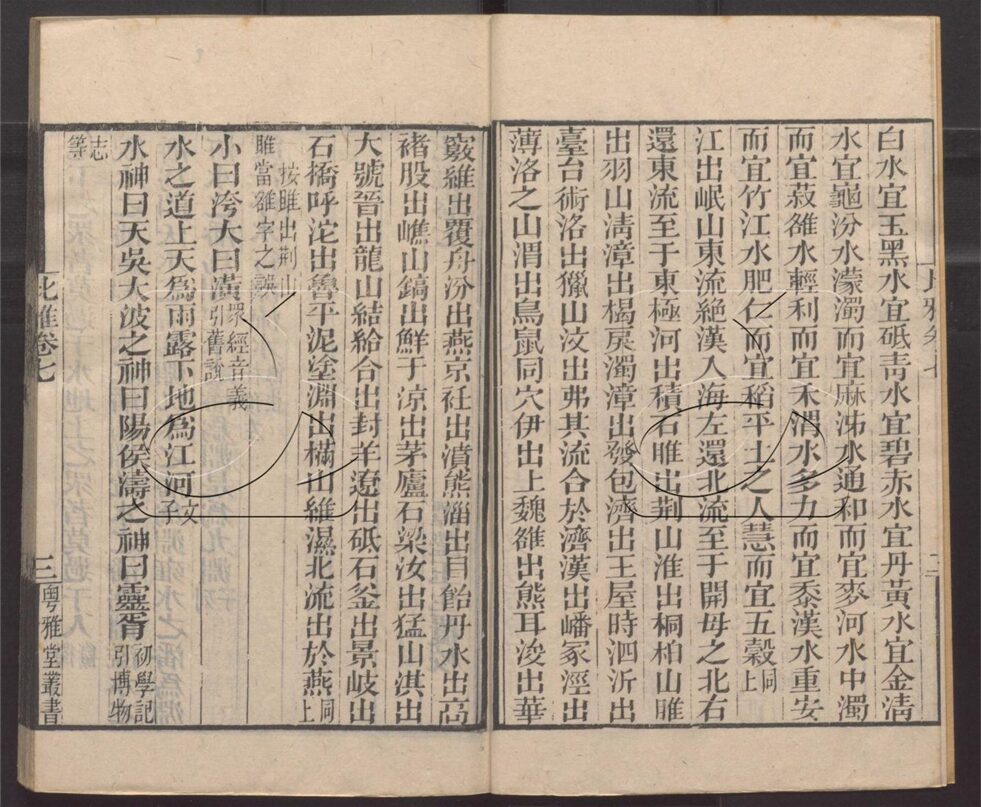 白水宜玉黑水宜砥靑水宜碧赤水宜丹黃水宜金淸
水宜龜汾水濛濁而宜麻泲水通和而宜麥河水中濁
而宜菽雒水輕利而宜禾渭水多力而宜黍漢水重安
而宜竹江水肥仁而宜稻平土之人慧而宜五穀同上
江出岷山東流絕漢入海左還北流至于開母之北右
還東流至于東極河出積石雎出荆山淮出桐柏山睢
出羽山淸漳出楬戾濁漳出發包濟出王屋時泗沂出
臺台術洛出獵山汶出弗其流合於濟漢出嶓冢涇出
薄洛之山渭出鳥鼠同穴伊出上魏雒出熊耳浚出華
竅維出覆舟汾出燕京衽出濆熊淄出目飴丹水出高
褚股出嶕山鎬出鮮于涼出茅廬石梁汝出猛山淇出
大號晉出龍山結給合出封羊遼出砥石釜出景岐出
石橋呼沱出魯平泥塗淵出樠山維濕北流出於燕同上
按雎出荆山
雎當雒字之誤
小曰洿大曰潢眾經音義引舊說
水之道上天為雨露下地為江河文子
水神曰天吳大波之神曰陽侯濤之神曰靈胥初學記引博物
志等
比雅卷七
三
粤雅堂叢書